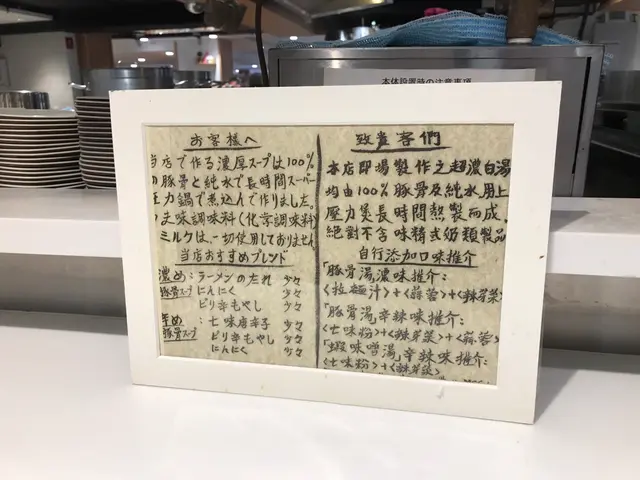 本体設置時の注意事項
お客様へ
当店で作る濃厚スープは100%
の豚骨と純水で長時間スーパー
圧力鍋で煮込んで作りました。
うま味調味料(化学調味料)
ミルクは、一切使用しておりません
当店おすすめブレンド
濃め:ラーメンのたれ 少々
豚骨スープ にんにく 少々
ピリ辛もやし 少々
辛め:七味唐辛子 少々
豚骨スープ ピリ辛もやし 少々
にんにく 少々
致貴客們
本店即場製作之超濃白湯
均由100%豚骨及純水用上
壓力煲長時間熬製而成,
絕對不含味精或奶類製品
自行添加口味推介
「豚骨湯濃味推介:
<拉麵汁>+<蒜蓉>+<辣芽菜>
「豚骨湯,辛辣味推介:
<七味粉>+<辣芽菜>+<蒜蓉>
「蝦味噌湯,辛辣味推介:
<七味粉><辣芽菜>